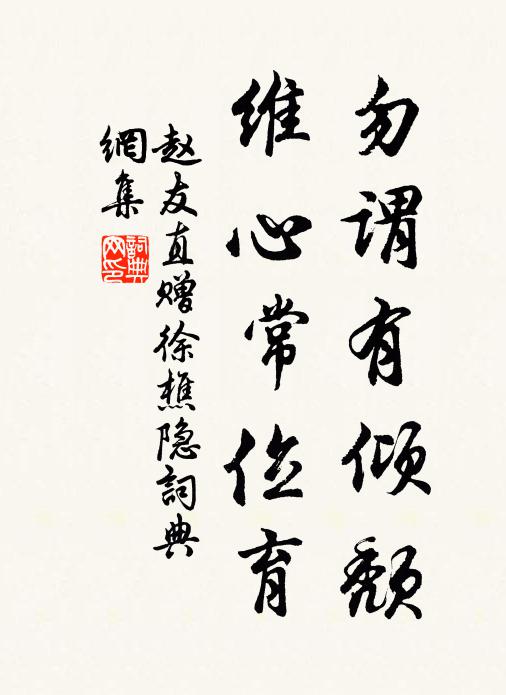 勿谓有倾颓
维心常位育
赵友直赠徐樵隐詞典
網集
詞典网印